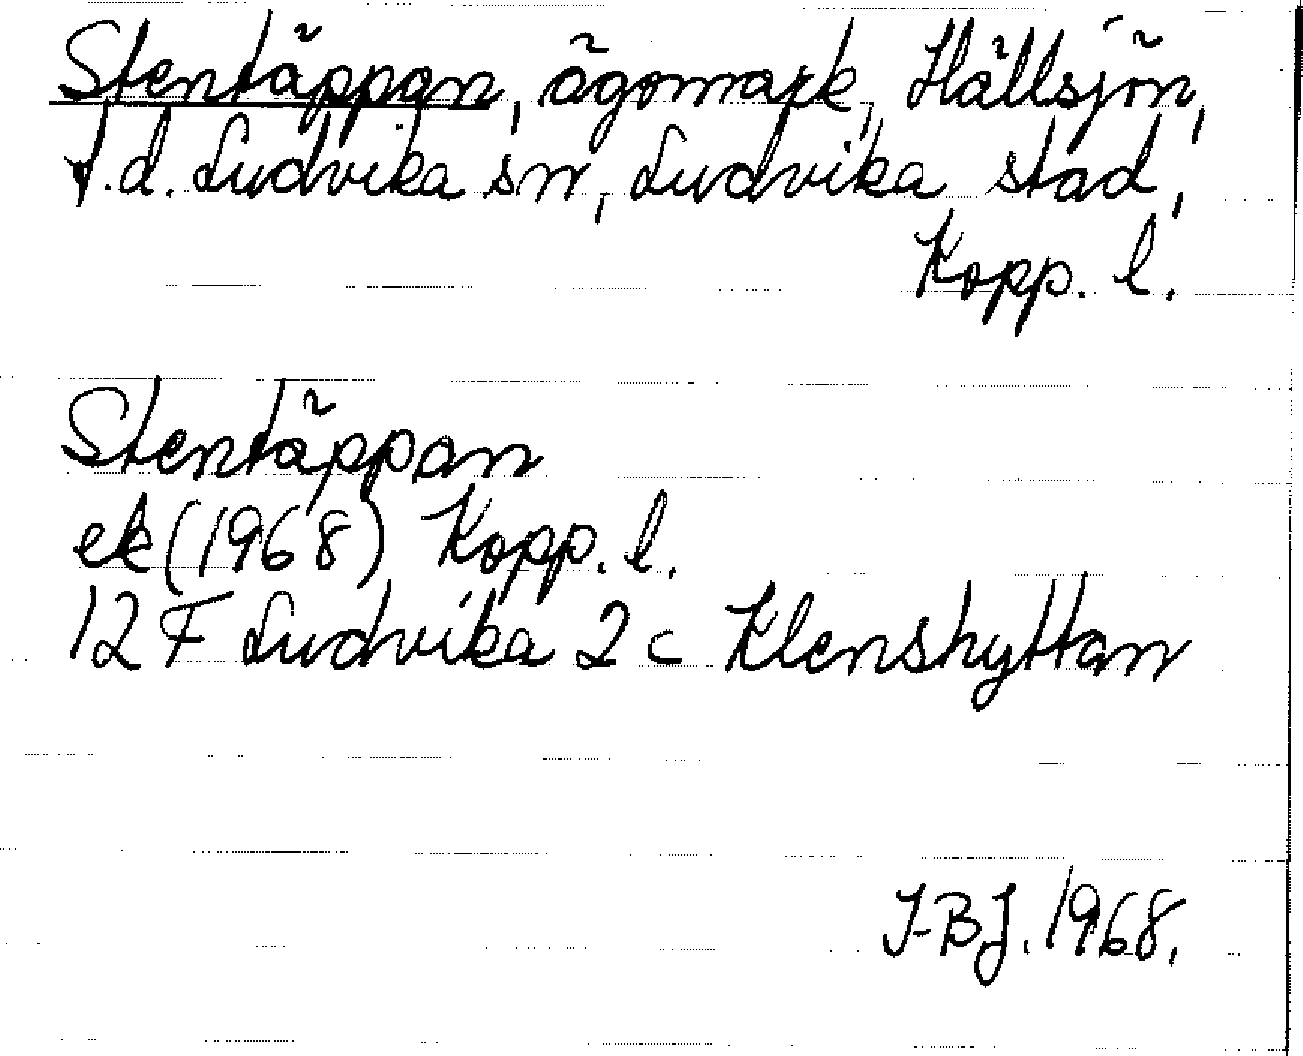 Stentäppan, ägomark, Hällsjön,
f.d. Ludvika sn, Ludvika stad,
Kopp. l.
Stentäppan
ek (1968) Kopp. l.
12 F Ludvika 2 c Klenshyttan
I-BJ. 1968.